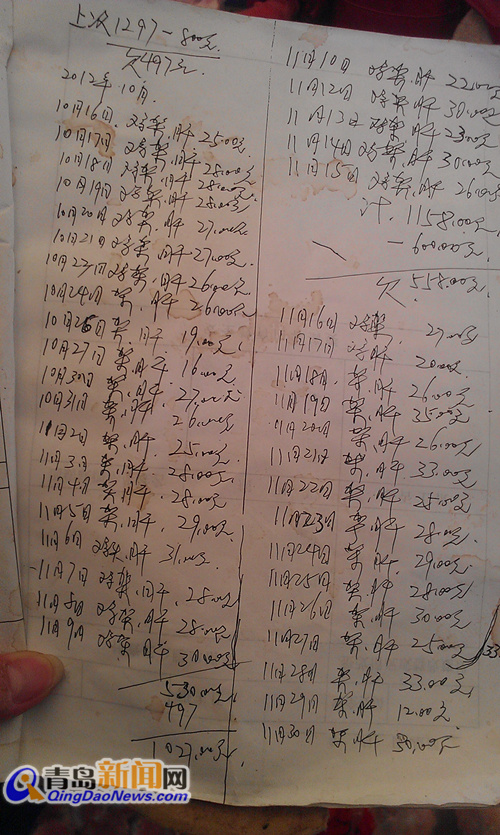 上次1297-800元
欠497元.
2012年10月.
10月16日. 鸡架.肝 25.00元
10月17日 鸡架.肝 28.00元
10月18日 鸡架.肝 28.00元
10月19日 鸡架.肝 28.00元
10月20日 鸡架.肝 27.00元
10月21日 鸡架.肝 27.00元.
10月23日 鸡架.肝 26.00元
10月24日 架.肝 26.00元
10月26日 架.肝 19.00元
10月27日 架.肝. 16.00元
10月30日 架.肝. 27.00元
10月31日 架.肝. 26.00元
11月2日 架.肝 25.00元
11月3日 架.肝 28.00元
11月4日 架.肝 28.00元.
11月5日 架.肝. 29.00元
11月6日 鸡架.肝 31.00元
11月7日 鸡架.肝. 28.00元
11月8日 鸡架.肝 28.00元
11月9日 鸡架 肝 30.00元
530.00元
497
1027.00元
11月10日 鸡架.肝 22.00元
11月12日 鸡架.肝 30.00元
11月13日 鸡架.肝 23.00元
11月14日 鸡架.肝 30.00元
11月15日 鸡架.肝 26.00元
计. 1158.00元.
-600.00元
欠 558.00元.
11月16日 鸡架. 27.00元
11月17日 鸡肝 20.00元
11月18日. 架.肝. 26.00元
11月19日 架.肝 35.00元
11月20日 架.肝 26.00元
11月21日 架.肝 33.00元
11月22日 架.肝 25.00元
11月23日 架.肝 28.00元
11月24日 架.肝. 29.00元
11月25日 架.肝 28.00元
11月26日 架.肝 30.00元
11月27日 架.肝 25.00元 33
11月28日 架.肝 33.00元
11月29日 架.肝 12.00元.
11月30日 架.肝 30.00元
青岛新闻网
QingDaoNews.com